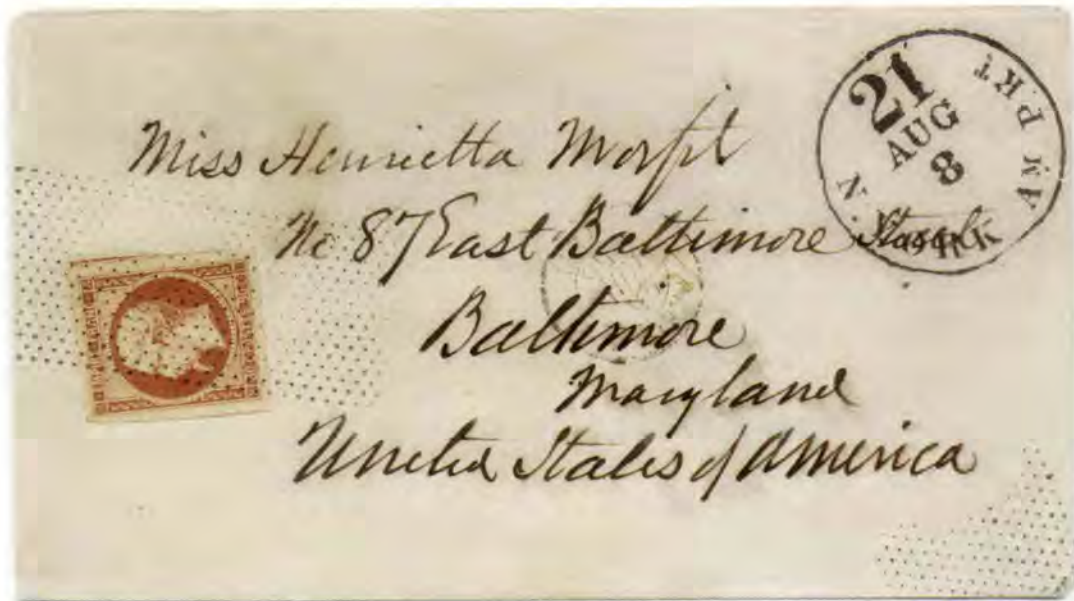 Miss Henrietta Morfit
No 87 East Baltimore Street
Baltimore
Maryland
United States of America
N. YORK AM PKT
21
AUG
8